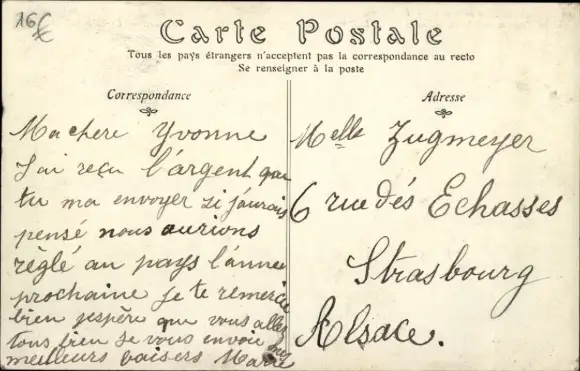 16€
Carte Postale
Tous les pays étrangers n'acceptent pas la correspondance au recto
Se renseigner à la poste
Correspondance
Ma chère Yvonne
J'ai reçu l'argent que
tu ma envoyer si j'aurais
pensé nous aurions
règlé au pays l'année
prochaine je te remercie
bien jespère que vous allez
tous bien je vous envoie mes
meilleurs baisers Marie
Adresse
Melle Zugmeyer
6 rue dés Echasses
Strasbourg
Alsace.